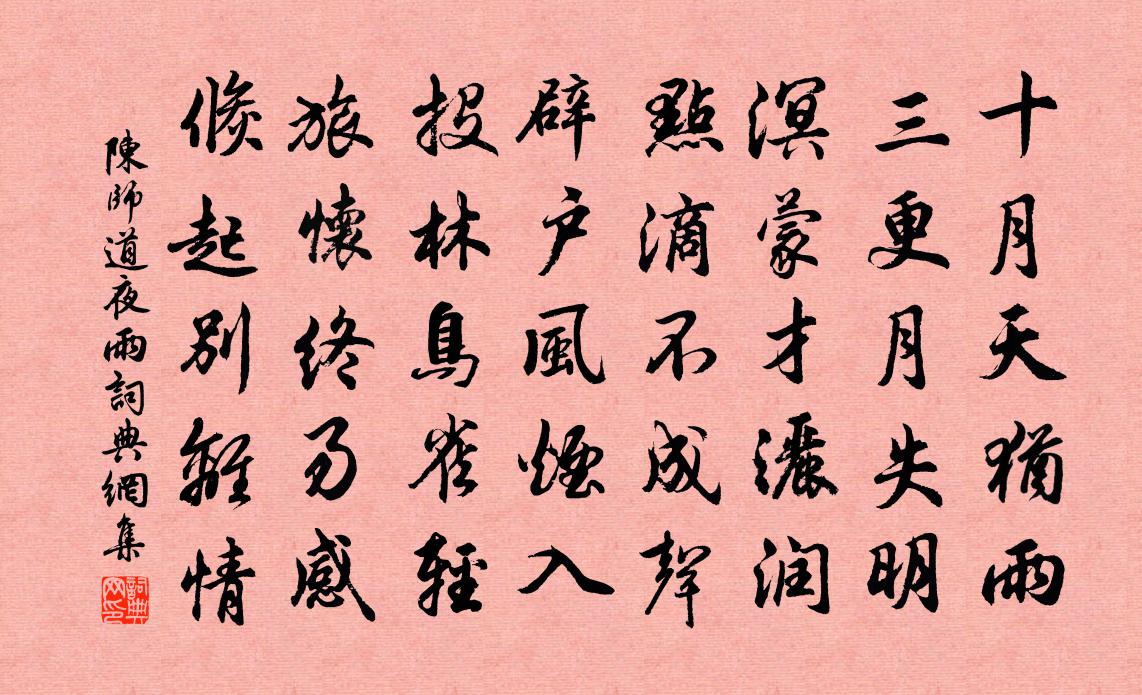 十月天猶雨
三更月失明
溟蒙才灑潤
點滴不成聲
辟户風煙入
投林鳥雀輕
旅懷終易感
倏起別離情
陳師道夜雨詞典網集
詞典网印